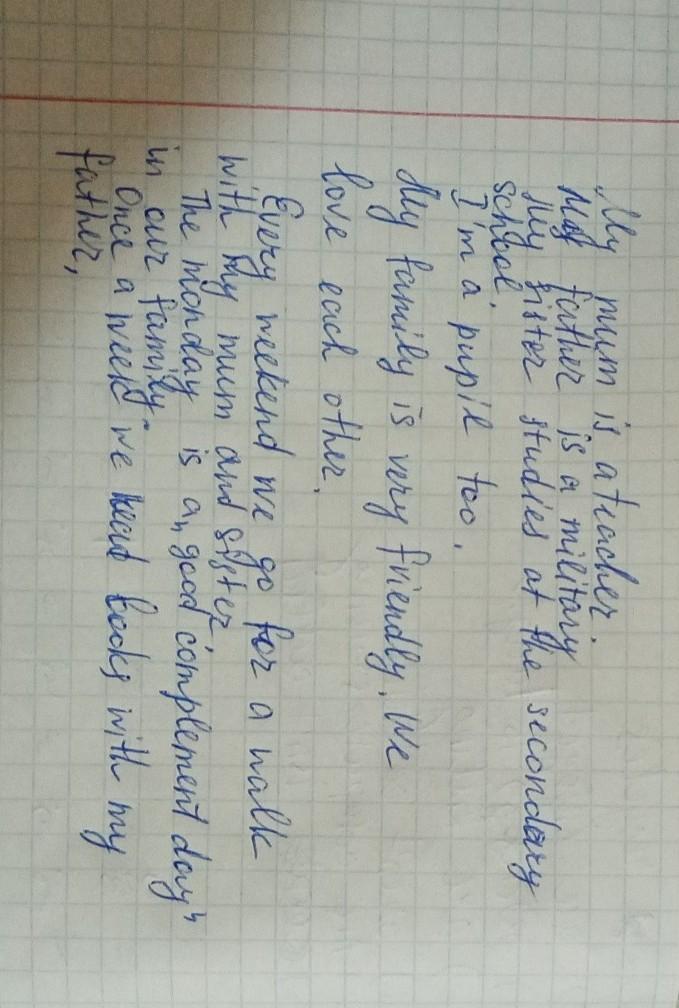 My mum is a teacher.
My father is a military
My sister studies at the secondary
school.
I'm a pupil too.
My family is very friendly. We
love each other.
Every weekend we go for a walk
with my mum and sister.
The monday is a „good complement day“
in our family.
Once a week we read books with my
father,